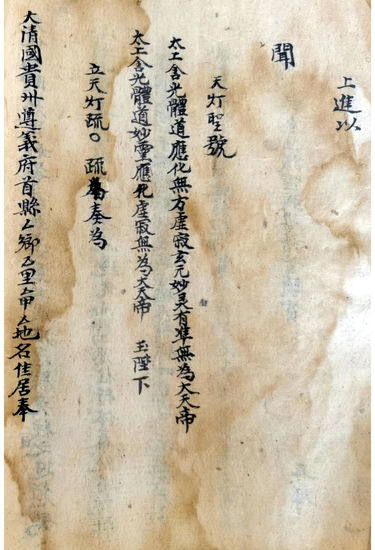 上進以
聞
天灯聖號
太上含光體道應化無方虛寂玄元妙灵有準無為大天帝
太上含光體道妙靈應化虛寂無為大天帝 玉陛下
立天灯疏○ 疏為奏為
大清國貴州遵義府首縣厶鄉厶里厶甲厶地名住居奉